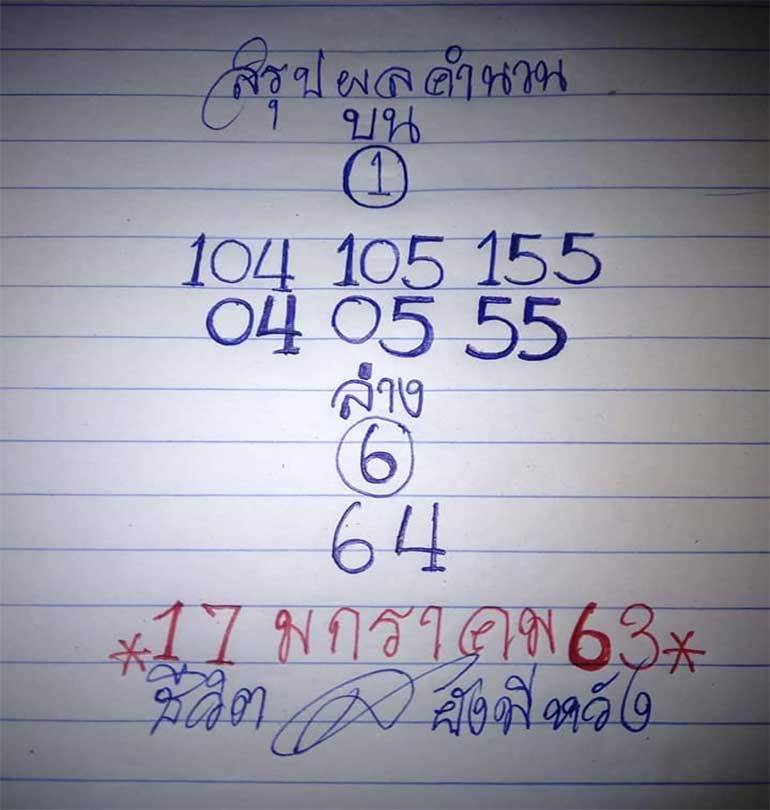 สรุปผลคำนวน
บน
1
104 105 155
04 05 55
ล่าง
6
64
*17 มกราคม 63*
ชีวิต ยังมีหวัง